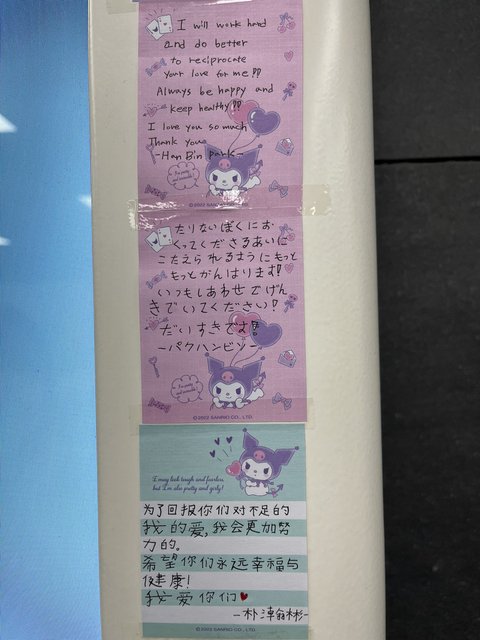 I will work hard
and do better
to reciprocate
your love for me!!
Always be happy and
keep healthy!!
I love you so much
Thank you
-Han Bin park-
I'm pretty
and adorable!
©2022 SANRIO CO., LTD.
たりないぼくにお
くってくださるあいに
こたえられるようにもっと
もっとがんばります!
いつもしあわせでげん
きでいてください!
だいすきです!
-パクハンビン-
I'm pretty
and adorable!
©2022 SANRIO CO., LTD.
I may look tough and fearless,
but I'm also pretty and girly!
为了回报你们对不足的
我的爱,我会更加努
力的。
希望你们永远幸福与
健康!
我爱你们♥
-朴漧彬-
©2022 SANRIO CO., LTD.